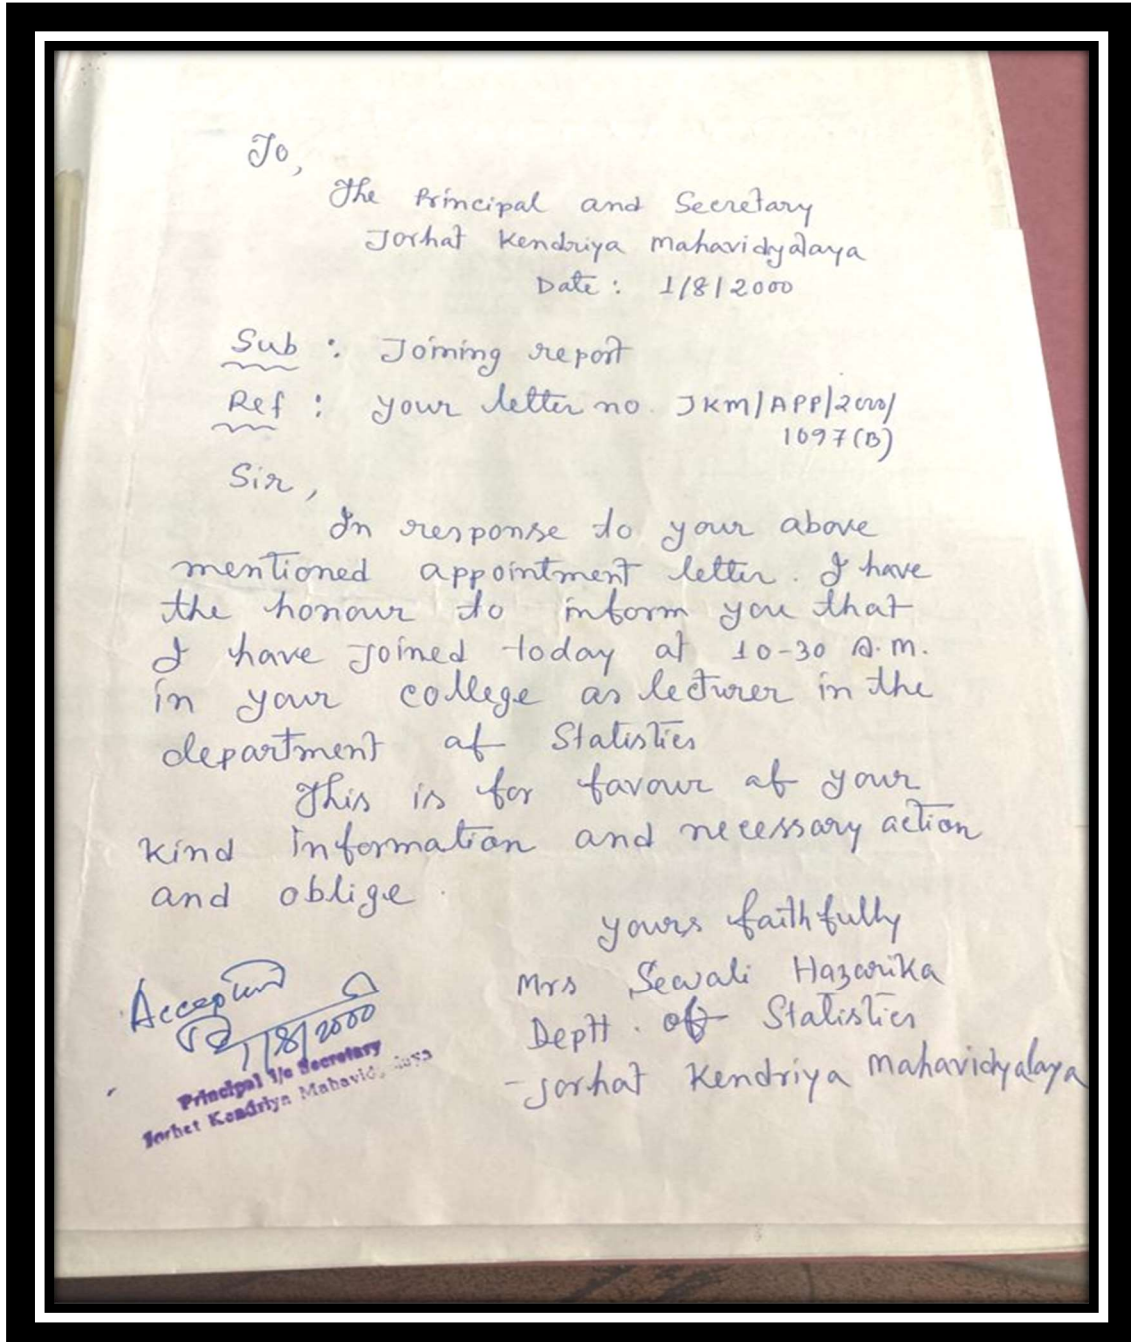 To,
The Principal and Secretary
Jorhat Kendriya Mahavidyalaya
Date : 1/8/2000
Sub : Joining report
Ref : your letter no. JKM/APP/2000/
1097(B)
Sir,
In response to your above
mentioned appointment letter. I have
the honour to inform you that
I have Joined today at 10-30 A.M.
in your college as lecturer in the
department of Statistics
This is for favour of your
kind information and necessary action
and oblige.
yours faithfully
Mrs Sewali Hazarika
Deptt. of Statistics
Jorhat Kendriya Mahavidyalaya
Accepted
1/8/2000
Principal i/c Secretary
Jorhat Kendriya Mahavidyalaya